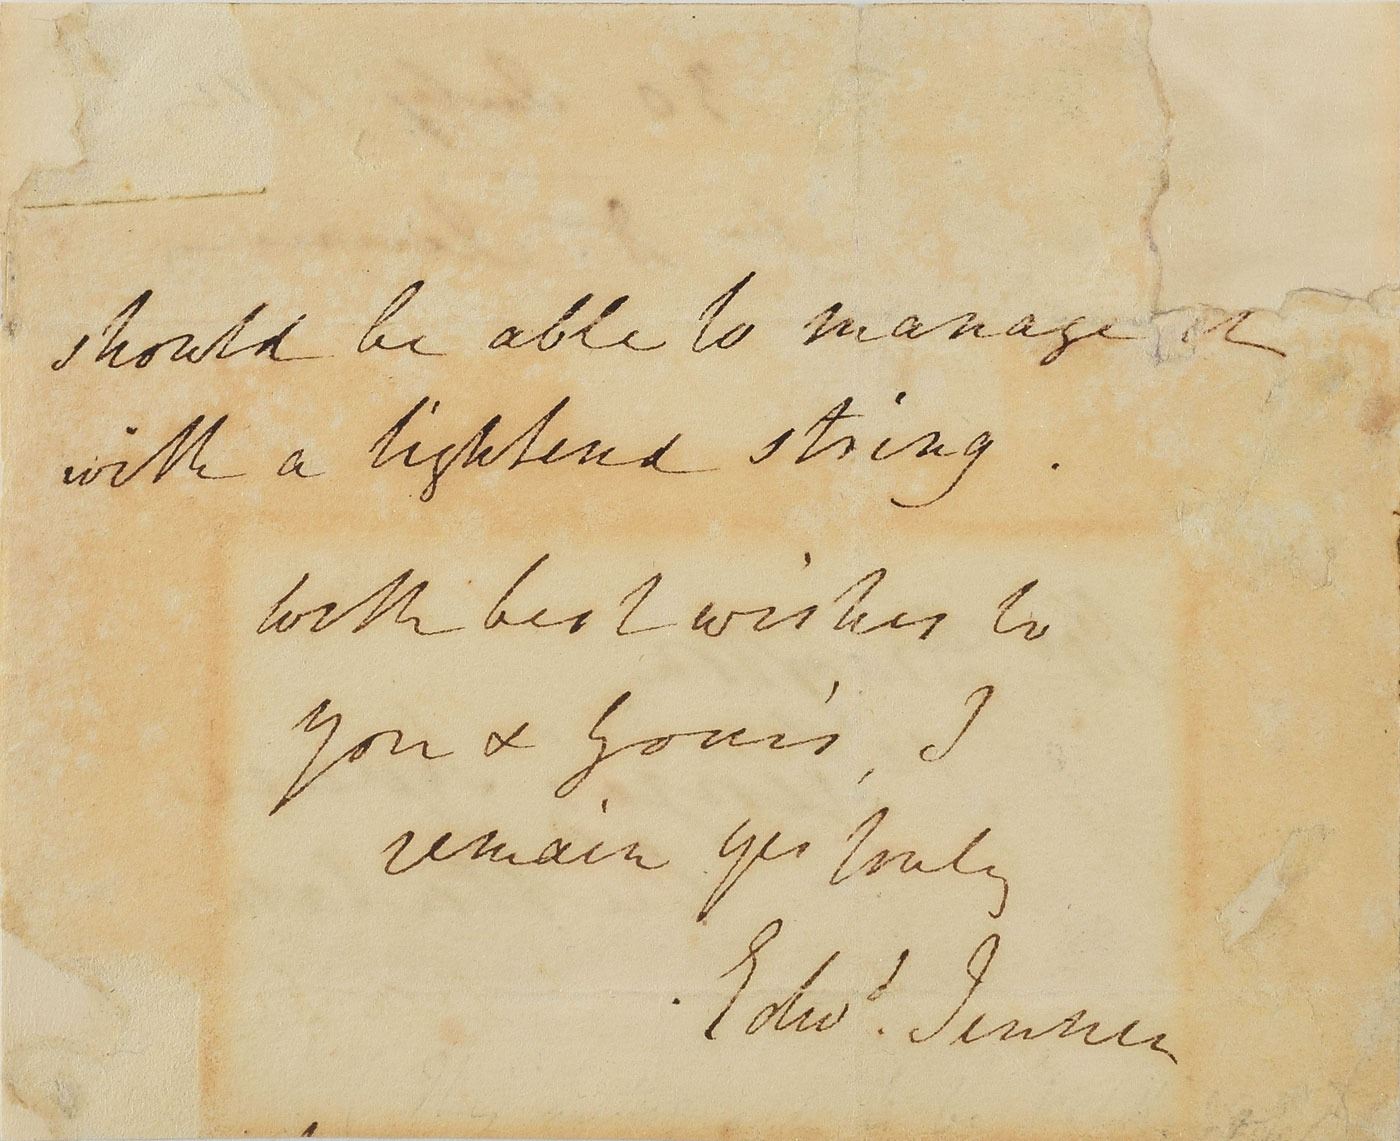 should be able to manage it
with a tightend string.
with best wishes to
you & yours, I
remain yrs truly
Edwd. Jenner